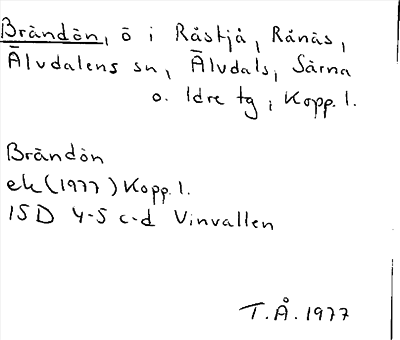 Brändön, ö i Råstjå, Rånäs,
Älvdalens sn, Älvdals, Särna
o. Idre tg, Kopp. l.
Brändön
ek (1977) Kopp. l.
15D 4-5 c-d Vinvallen
T.Å. 1977